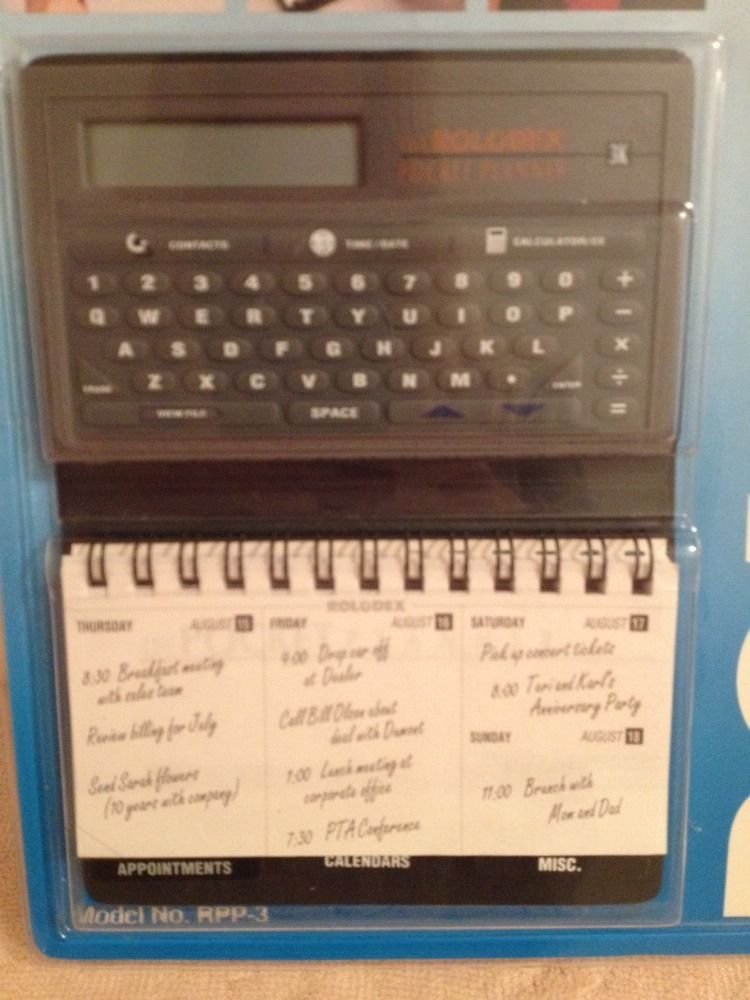 ROLODEX
POCKET PLANNER
3K
CONTACTS
TIME/DATE
CALCULATOR/CE
1 2 3 4 5 6 7 8 9 0 +
Q W E R T Y U I O P −
A S D F G H J K L ×
Z X C V B N M • ENTER ÷
VIEW FILE SPACE =
ROLODEX
THURSDAY AUGUST 15
8:30 Breakfast meeting
with sales team
Review billing for July
Send Sarah flowers
(10 years with company)
FRIDAY AUGUST 16
9:00 Drop car off
at Dealer
Call Bill Olson about
deal with Dumont
1:00 Lunch meeting at
corporate office
7:30 PTA Conference
SATURDAY AUGUST 17
Pick up concert tickets
8:00 Teri and Karl's
Anniversary Party
SUNDAY AUGUST 18
11:00 Brunch with
Mom and Dad
APPOINTMENTS
CALENDARS
MISC.
Model No. RPP-3